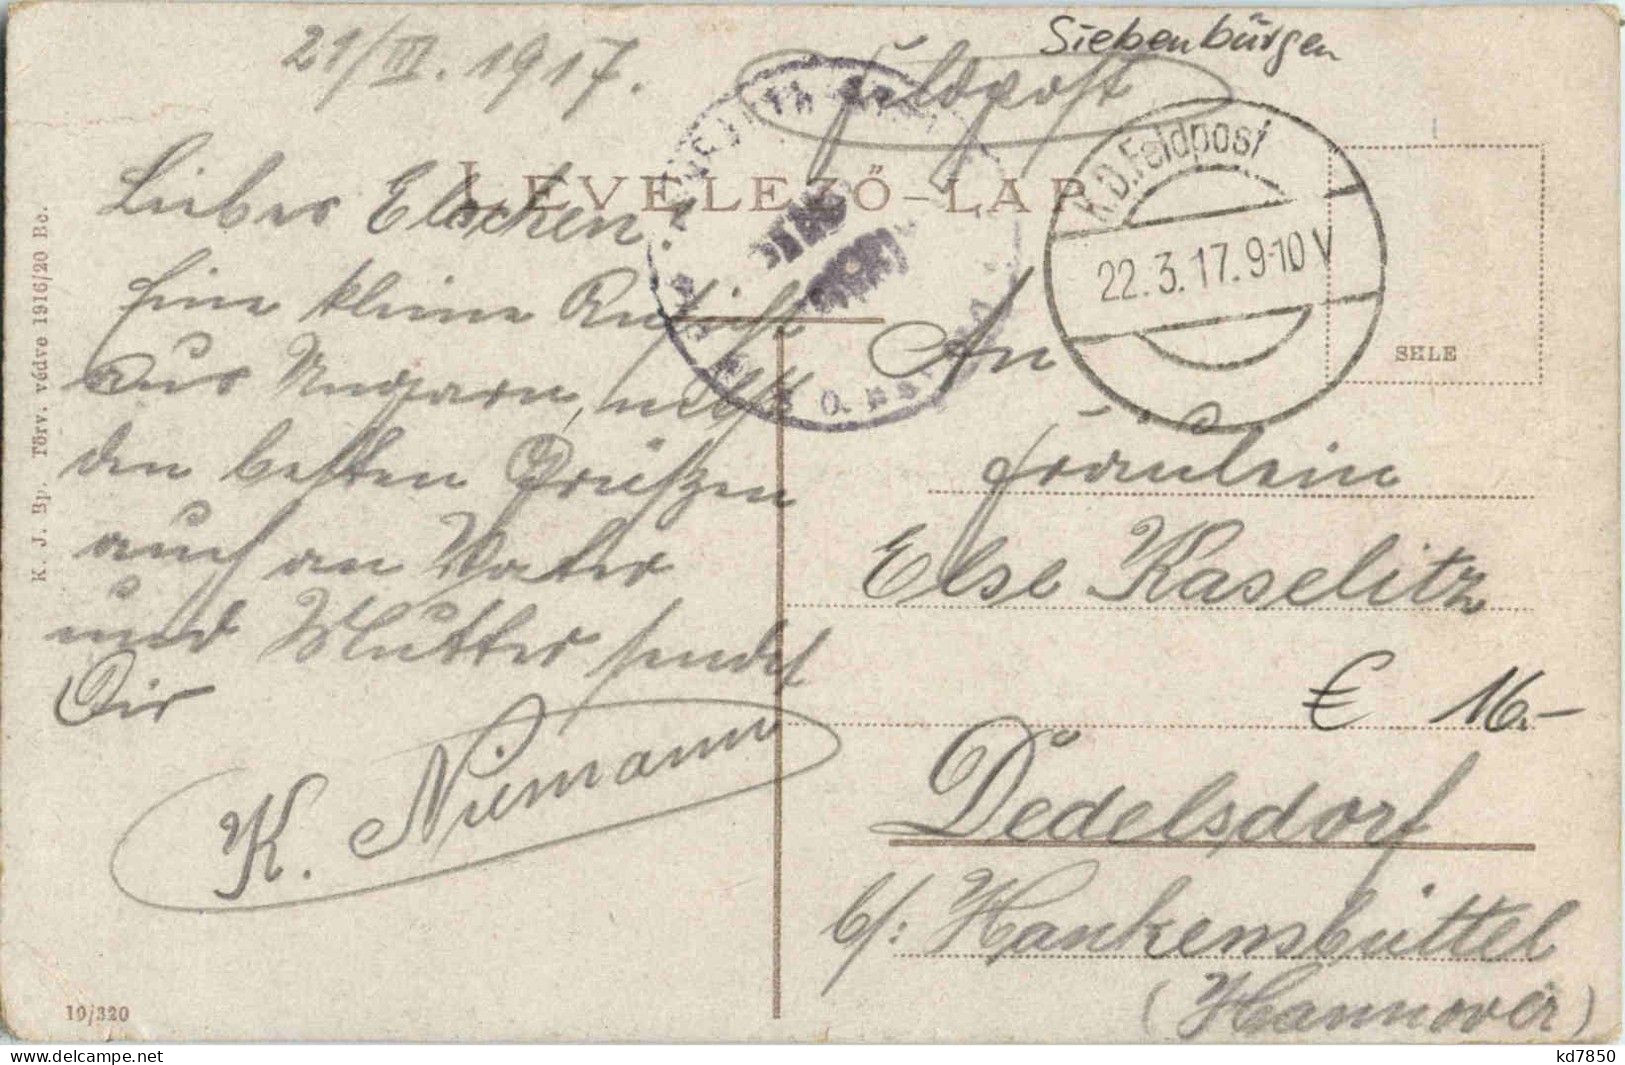 Siebenbürgen
21/III. 1917.
Feldpost
LEVELEZŐ-LAP
K.D.Feldpost
22.3.17.9-10V
Liebes Elschen!
Eine kleine Ansicht
aus Ungarn, nebst
den besten Grüßen
auch an Vater
und Mutter sendet
Dir
K. Niemann
An
Fräulein
Else Kaselitz
€ 16.-
Dedelsdorf
b/: Hankensbüttel
(Hannover)
K. J. Bp. Törv. védve 1916/20 Bc.
10/320